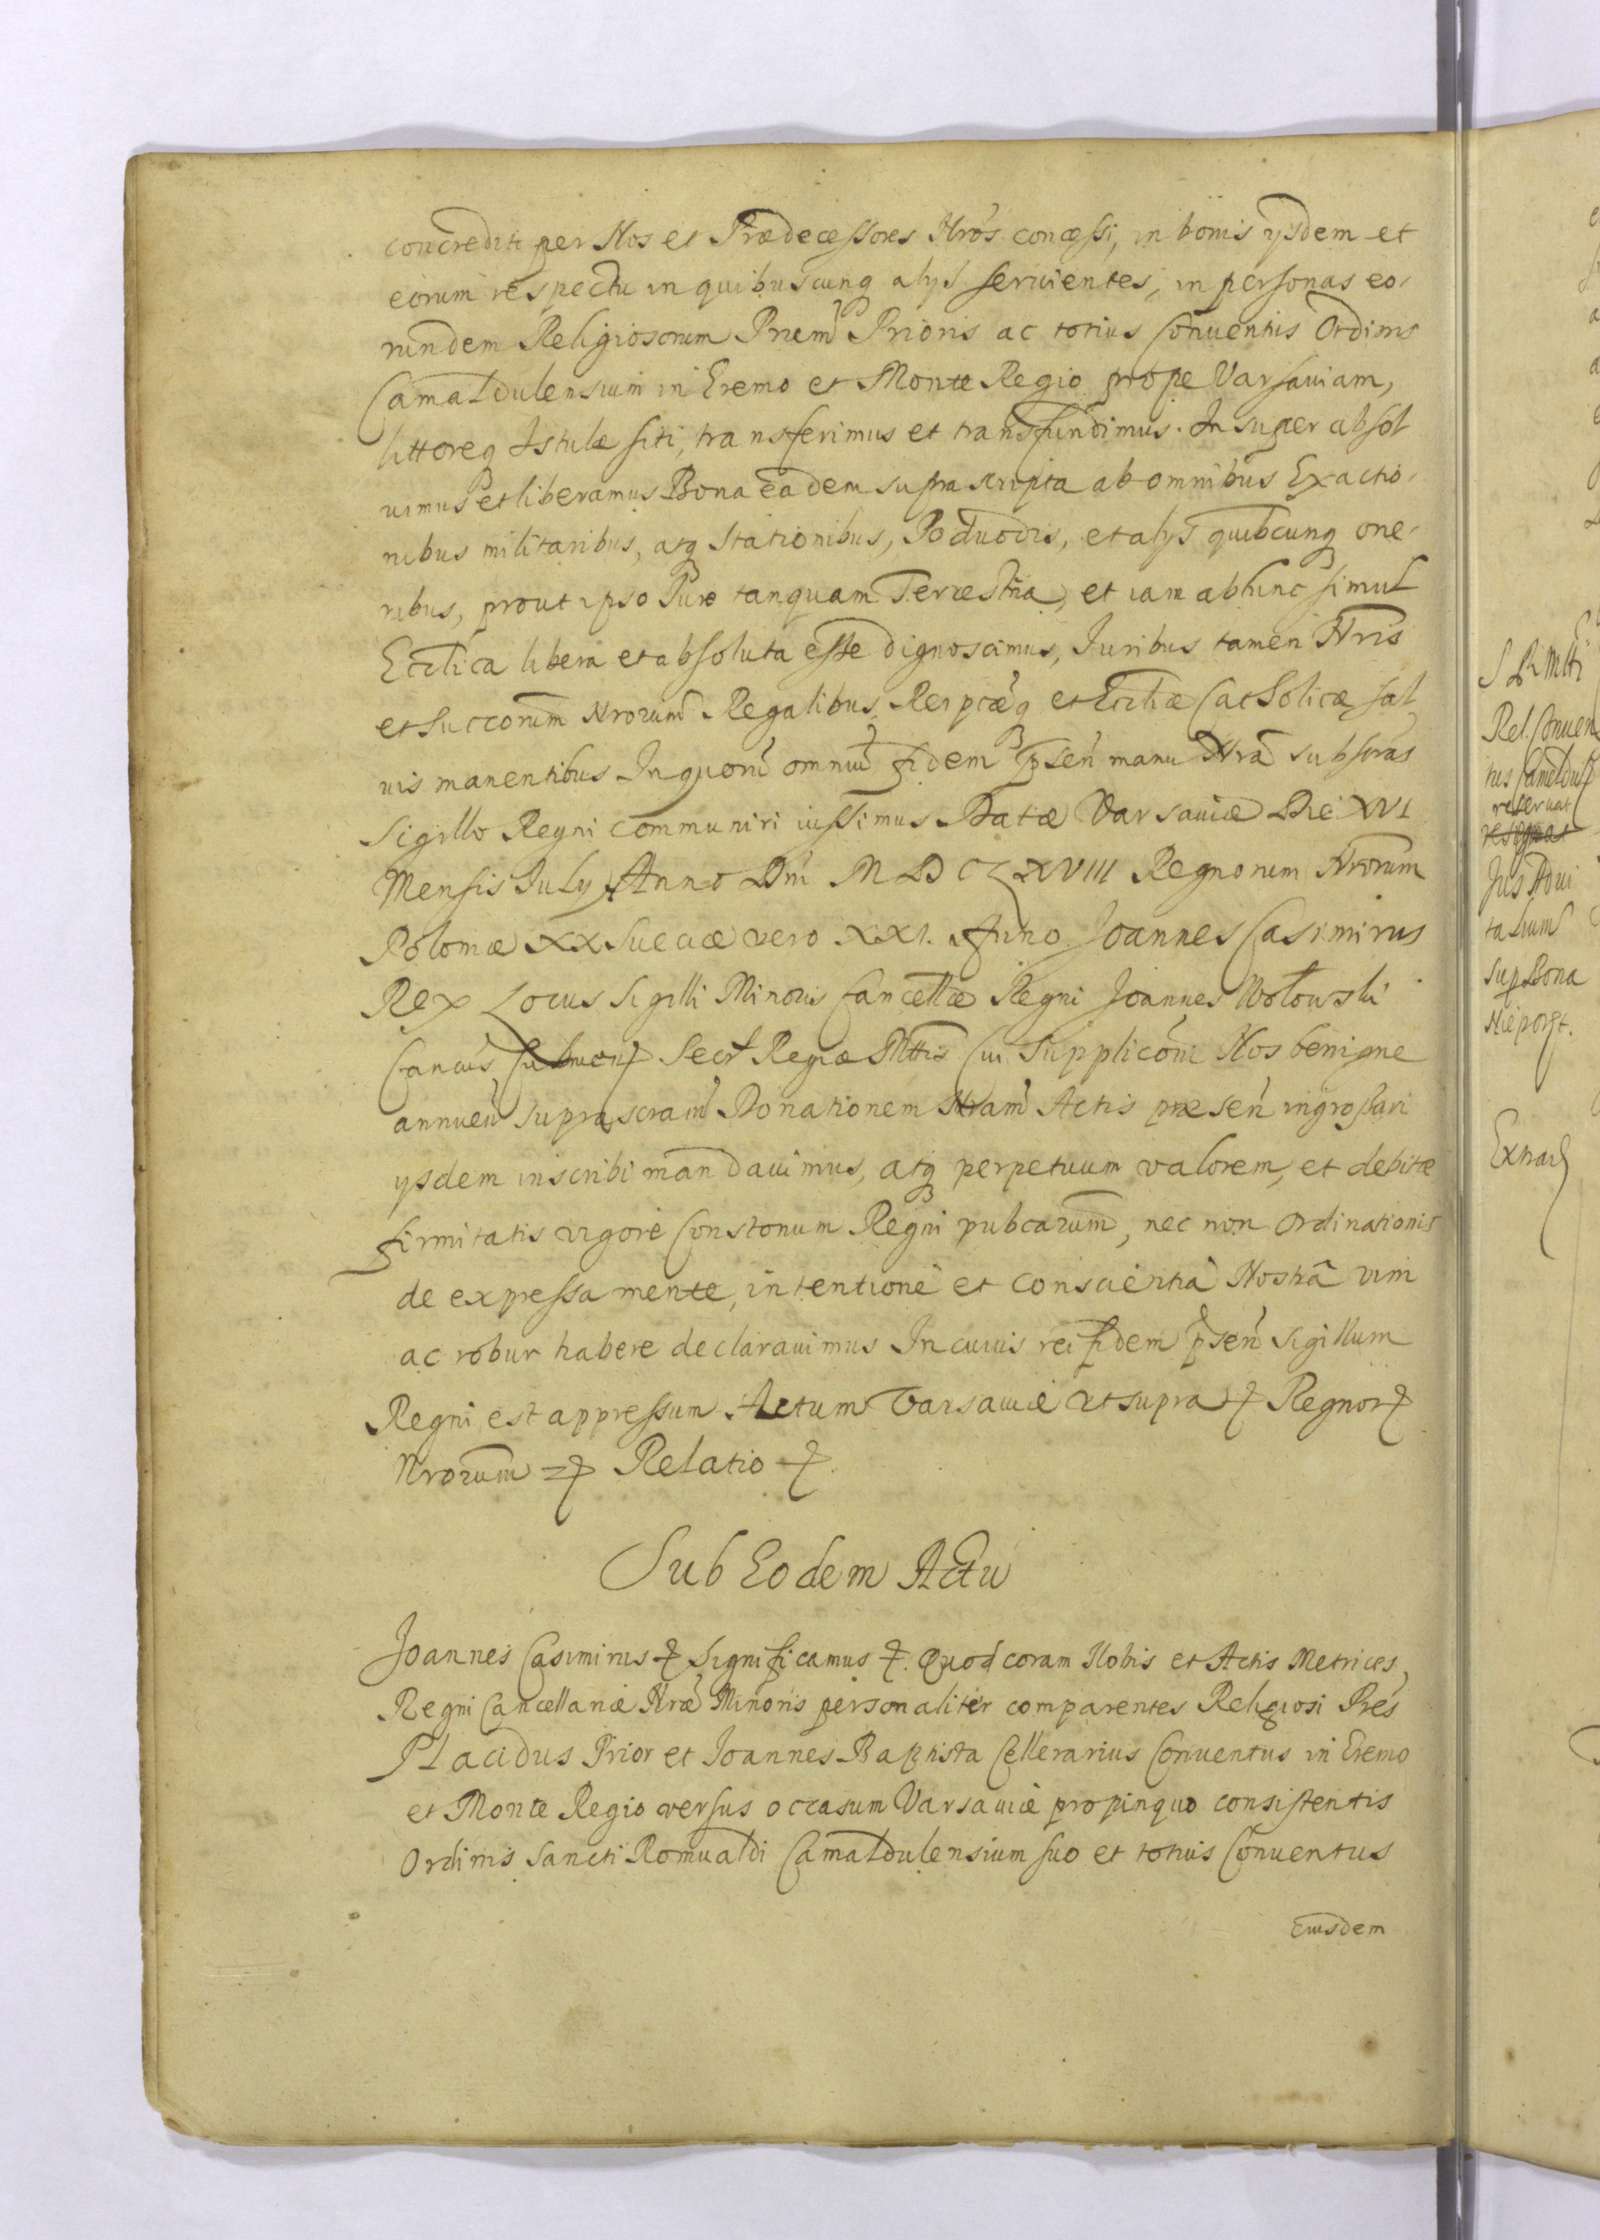 concrediti per Nos et Prædecessores Nros concessi, in bonis ijsdem et
eorum respectu in quibuscunq alys seruientes, in personas eo-
rundem Religiosorum Prũm Prioris ac totius Conuentus Ordinis
Camaldulensium in Eremo et Monte Regio prope Varsauiam,
littoreq Istulæ siti, transferimus et transfundimus. Insuper absol
uimus et liberamus Bona eadem suprascripta ab omnibus Exactio-
nibus militaribus, atq Stationibus, Podvodis, et alys quibcunq one-
ribus, prout ipso Jure tanquam Terrestria, et iam abhinc simul
Ecclica libera et absoluta esse dignoscimus, Juribus tamen Nris
et Succorum Nrorum Regalibus, Reipcæq et Eccliæ Catholicæ sal
uis manentibus In quorũ omniũ fidem p̃sen manu Nrã subscras
Sigillo Regni communiri iussimus Datæ Varsauiæ Die XVI
Mensis July Anno Dni M D C LXVIII Regnorum Nrorum
Poloniæ XX Sueciæ vero XXI. Anno Joannes Casimirus
Rex Locus Sigilli Minoris Cancellæ Regni Joannes Wołowski
Secr Regiæ Mttis Cui Supplicõni Nos benigne
annuen suprascram Donationem Nram Actis præsen ingrossari
ysdem inscribi mandauimus, atq perpetuum valorem, et debitæ
firmitatis vigore Constonum Regni pubcarum, nec non Ordinationis
de expressa mente, intentione et conscientia Nostra vim
ac robur habere declarauimus In cuius rei fidem p̃sen Sigillum
Regni est appressum Actum Varsauiæ ut supra Regnor
Nrorum Relatio
Sub Eodem Actu
Joannes Casimirus Significamus Quod coram Nobis et Actis Metrices
Regni Cancellariæ Nræ Minoris personaliter comparentes Religiosi Pres
Placidus Prior et Joannes Baptista Cellerarius Conuentus in Eremo
et Monte Regio versus occasum Varsauiæ propinquo consistentis
Ordinis Sancti Romualdi Camaldulensium suo et totius Conuentus
Eiusdem
S R Mtti
Rel. Conuen
tus Camaldul
reseruat
Jus Adui
talium
sup Bona
Nieport.